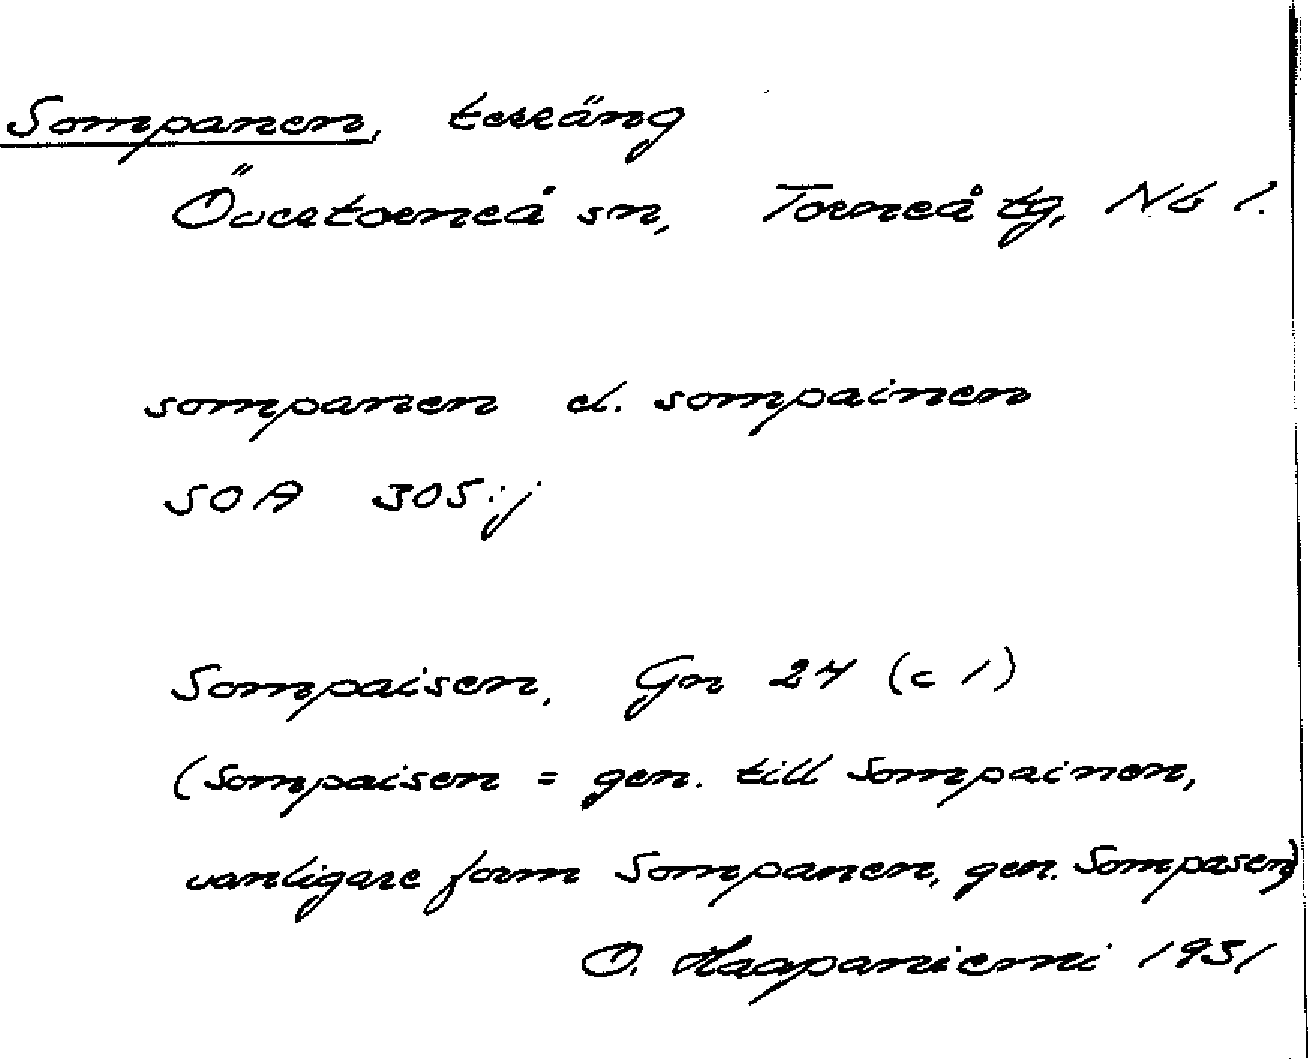 Sompanen, terräng
Övertorneå sn, Torneå tg, Nb l.
sompanen el. sompainen
SOA 305:j
Sompaisen, Gn 24 (c 1)
(Sompaisen = gen. till Sompainen,
vanligare form Sompanen, gen. Sompasen)
O. Haapaniemi 1951